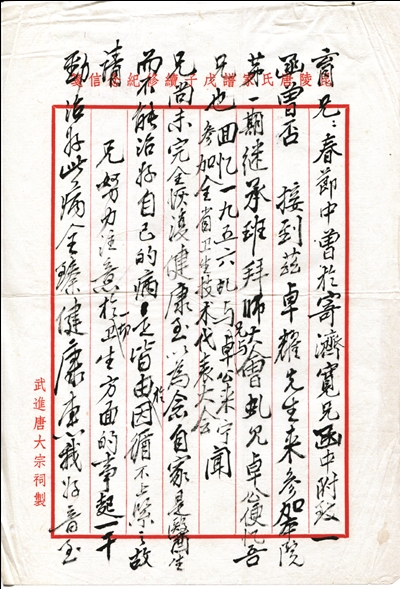 毘陵唐氏家譜戊子續修紀念信箋
育兄：春節中曾於寄濟寬兄函中附致一
函曾否 接到茲卓耀先生來參加本院
第一期继承班拜師大會 兄卓公便托吾
兄也 回忆一九五六 与卓公来宁 聞
参加全省卫生技术代表大会
兄尚未完全恢復健康至以為念自家是醫生
而不能治好自己的病 皆由於因循不上緊之故
請 兄努力注意一切於卫生方面的事起一干
勁治好此病全臻健康惠我好音至
武進唐大宗祠製